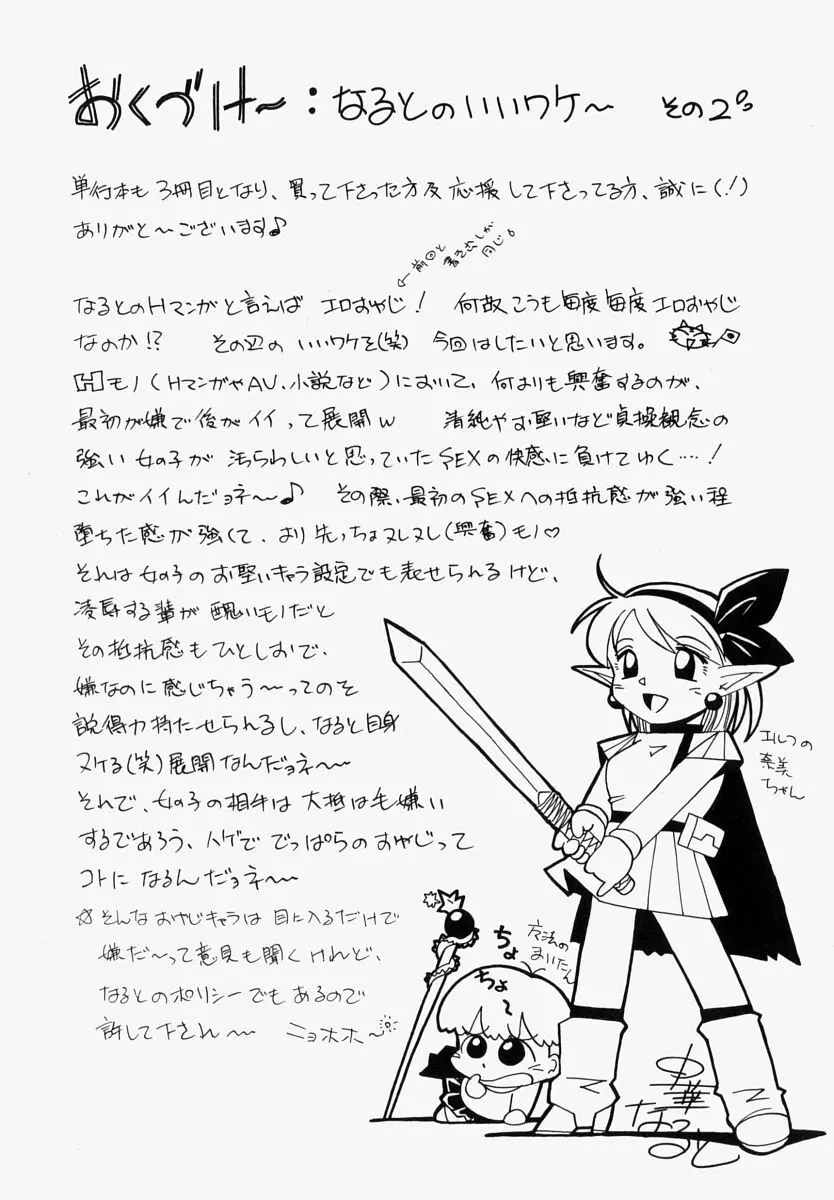 おくづけ〜:なるとのいいワケ〜 その2
単行本も3冊目となり、買って下さった方及応援して下さってる方、誠に(!)
ありがと〜ございます♪
←前回と
書き出しが
同じ。
なるとのHマンガと言えば エロおやじ! 何故こうも毎度毎度エロおやじ
なのか!? その辺のいいワケを(笑) 今回はしたいと思います。
Hモノ(HマンガやAV、小説など)において、何よりも興奮するのが、
最初が嫌で後がイイって展開w 清純やお堅いなど貞操観念の
強い女の子が汚らわしいと思っていたSEXの快感に負けてゆく…!
これがイイんだョネ〜♪ その際、最初のSEXへの抵抗感が強い程
堕ちた感が強くて、より先っちょヌレヌレ(興奮)モノ♡
それは女の子のお堅いキャラ設定でも表せられるけど、
凌辱する輩が醜いモノだと
その抵抗感もひとしおで、
嫌なのに感じちゃう〜ってのを
説得力持たせられるし、なると自身
ヌケる(笑)展開なんだョネ〜
それで、女の子の相手は大抵は毛嫌い
するであろう、ハゲででっぱらのおやじって
コトになるんだョネ〜
☆そんなおやじキャラは目に入るだけで
嫌だ〜って意見も聞くけれど、
なるとのポリシーでもあるので
許して下され〜 ニョホホ〜
エルフの
奈美
ちゃん
魔法の
まいたん
ちょ
ちょ〜
中華
なると